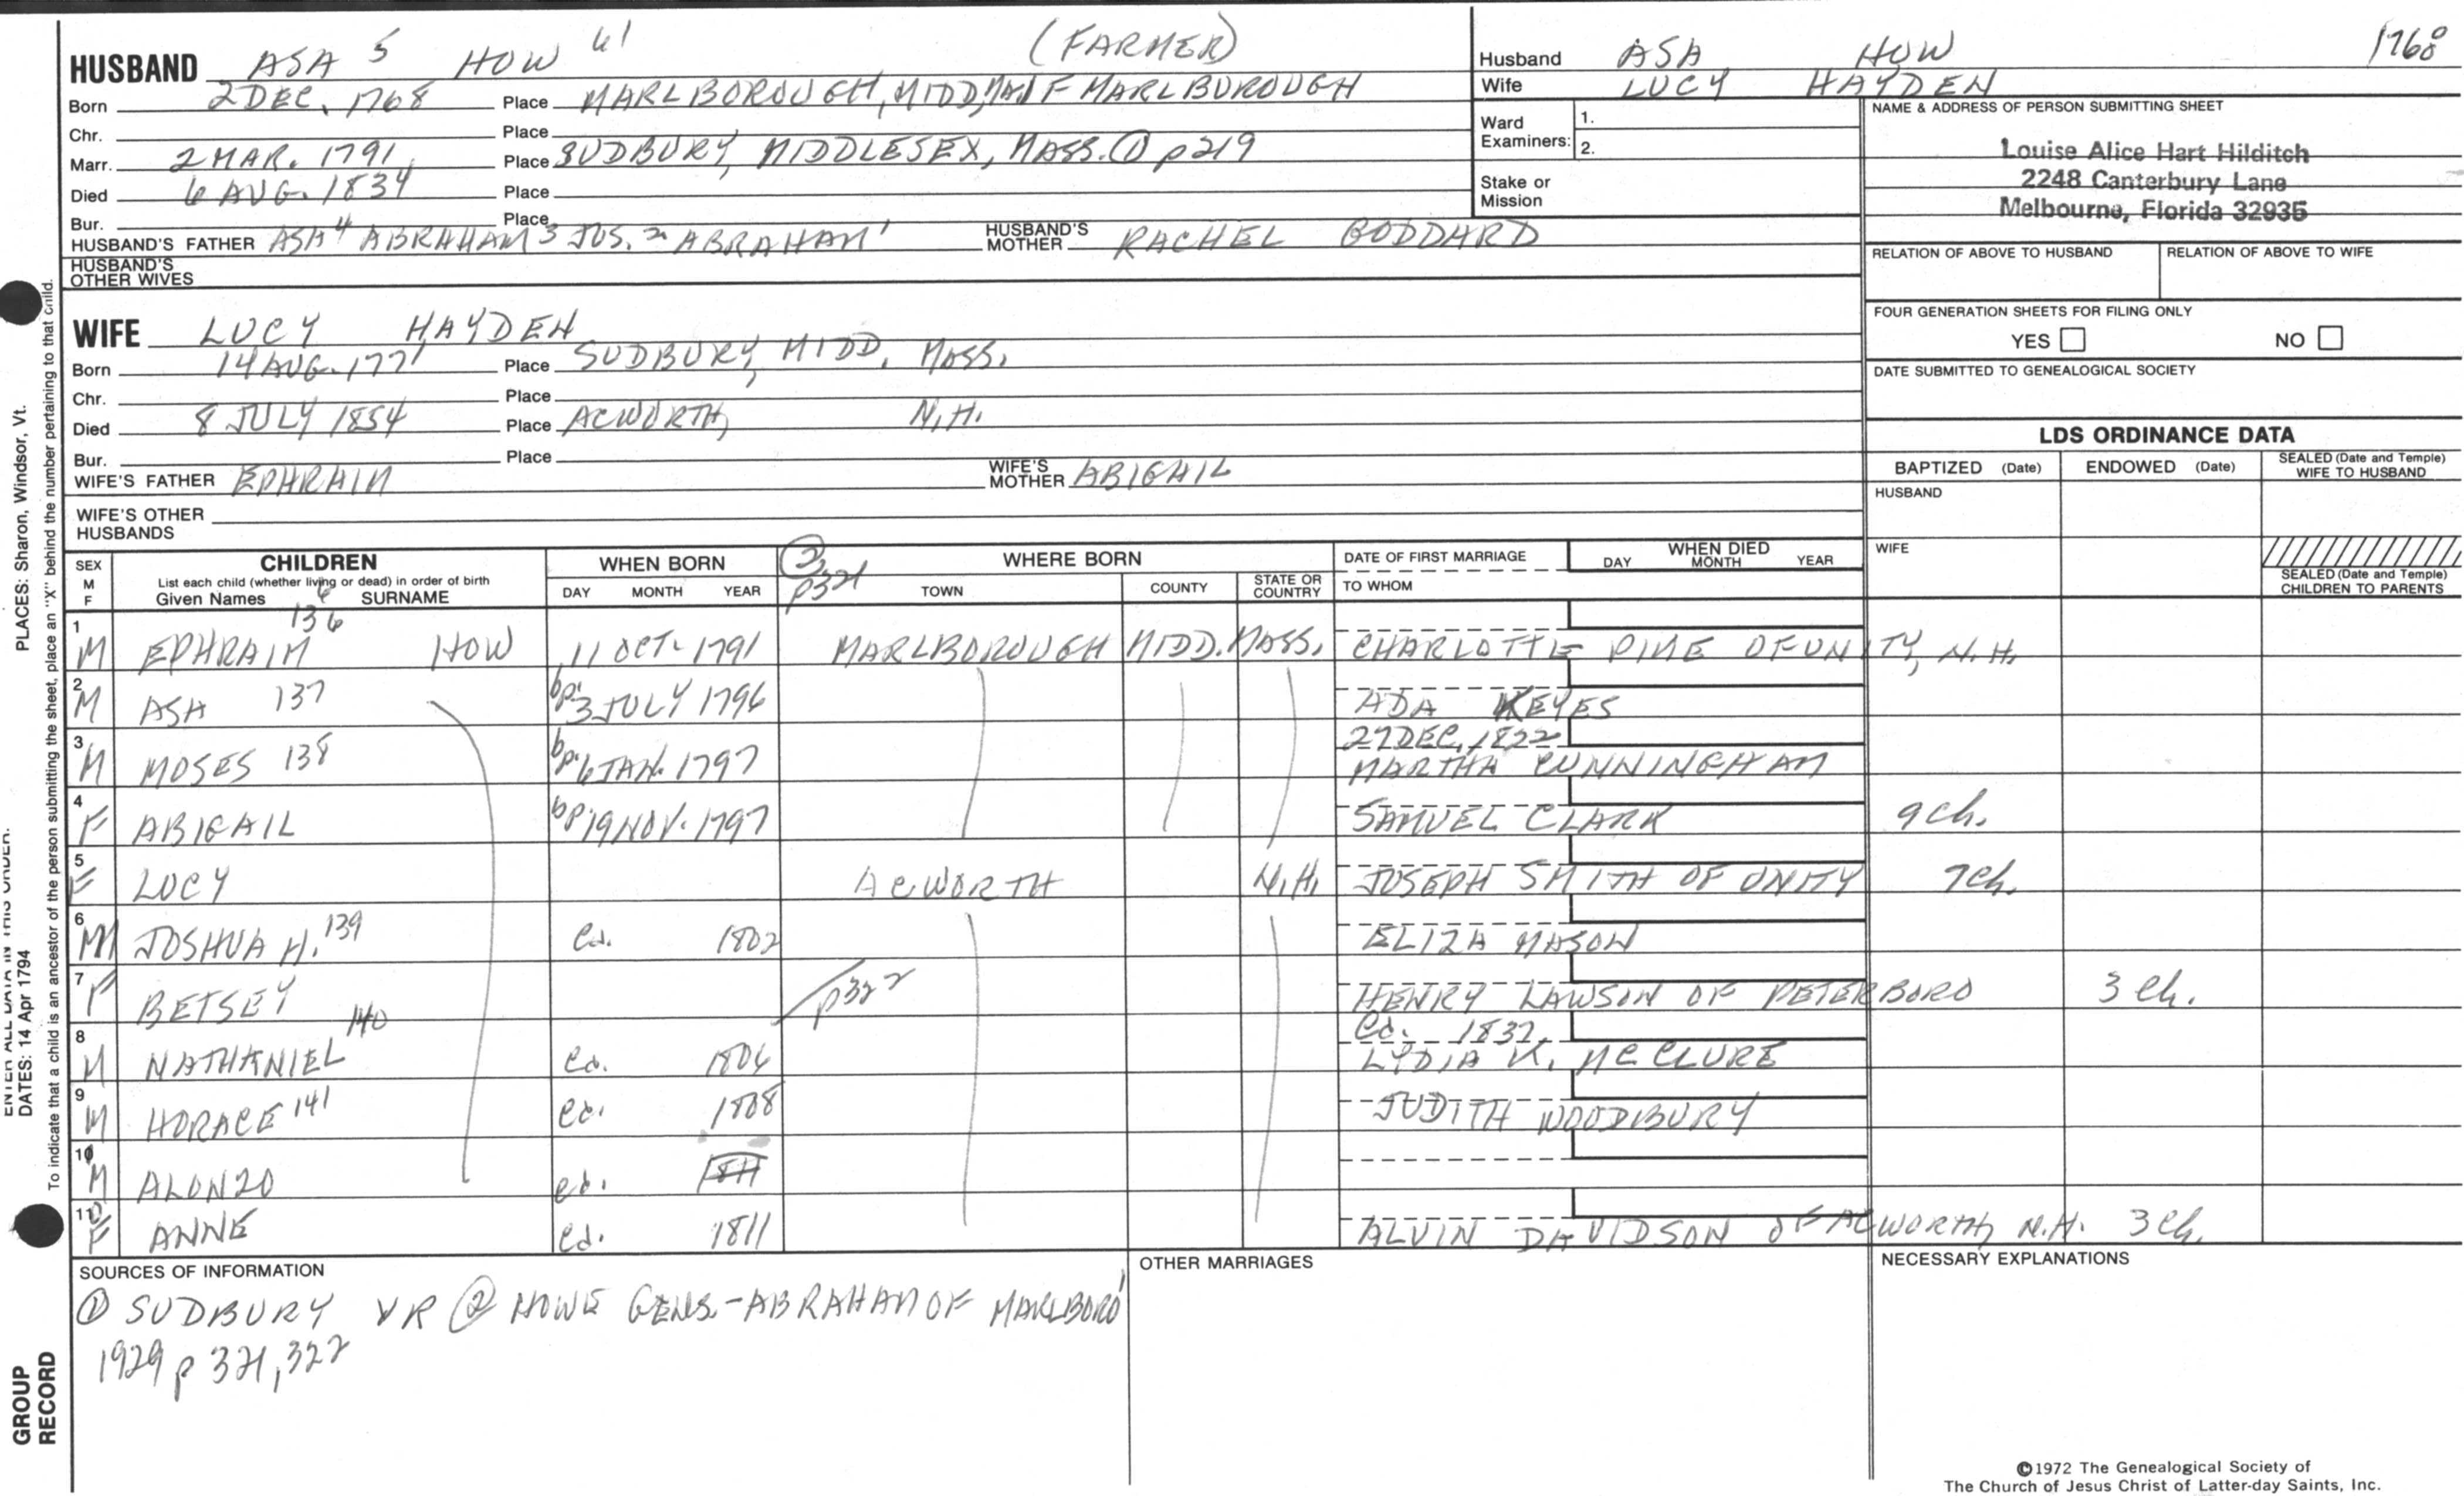 HUSBAND ASA 5 HOW 61 (FARMER)
Born 2 DEC. 1768 Place MARLBOROUGH, MIDD, MARLBOROUGH
Chr. Place
Marr. 2 MAR. 1791 Place SUDBURY, MIDDLESEX, MASS. ① p219
Died 6 AUG. 1834 Place
Bur. Place
HUSBAND'S FATHER ASA 4 ABRAHAM 3 JOS. 2 ABRAHAM 1 HUSBAND'S MOTHER RACHEL GODDARD
HUSBAND'S OTHER WIVES
Husband ASA HOW 1768
Wife LUCY HAYDEN
Ward Examiners: 1.
2.
Stake or Mission
NAME & ADDRESS OF PERSON SUBMITTING SHEET
Louise Alice Hart Hilditch
2248 Canterbury Lane
Melbourne, Florida 32935
RELATION OF ABOVE TO HUSBAND RELATION OF ABOVE TO WIFE
FOUR GENERATION SHEETS FOR FILING ONLY
YES NO
DATE SUBMITTED TO GENEALOGICAL SOCIETY
WIFE LUCY HAYDEN
Born 14 AUG. 1771 Place SUDBURY, MIDD. MASS.
Chr. Place
Died 8 JULY 1854 Place ACWORTH, N.H.
Bur. Place
WIFE'S FATHER EPHRAIM WIFE'S MOTHER ABIGAIL
WIFE'S OTHER HUSBANDS
LDS ORDINANCE DATA
BAPTIZED (Date) ENDOWED (Date) SEALED (Date and Temple) WIFE TO HUSBAND
HUSBAND
WIFE
SEALED (Date and Temple) CHILDREN TO PARENTS
SEX M F CHILDREN
List each child (whether living or dead) in order of birth
Given Names 6 SURNAME
WHEN BORN
DAY MONTH YEAR
② p321
WHERE BORN
TOWN COUNTY STATE OR COUNTRY
DATE OF FIRST MARRIAGE
TO WHOM
WHEN DIED
DAY MONTH YEAR
1 M EPHRAIM 136 HOW 11 OCT. 1791 MARLBOROUGH MIDD. MASS. CHARLOTTE OF UNITY, N.H.
2 M ASA 137 bp. 3 JULY 1796 ADA KEYES
3 M MOSES 138 bp. 6 JAN. 1797 27 DEC. 1822
MARTHA CUNNINGHAM
4 F ABIGAIL bp. 19 NOV. 1797 SAMUEL CLARK 9 ch.
5 F LUCY ACWORTH N.H. JOSEPH SMITH OF UNITY 7 ch.
6 M JOSHUA H. 139 ca. 1802 ELIZA MASON
7 F BETSEY p322 HENRY LAWSON OF PETERBORO 3 ch.
8 M NATHANIEL 140 ca. 1806 ca. 1837
LYDIA K. MCCLURE
9 M HORACE 141 ca. 1808 JUDITH WOODBURY
10 M ALONZO ca. 1811
11 F ANNE ca. 1811 ALVIN DAVIDSON OF ACWORTH, N.H. 3 ch.
SOURCES OF INFORMATION
① SUDBURY VR ② HOWE GENS. - ABRAHAM OF MARLBORO'
1929 p 321, 322
OTHER MARRIAGES
NECESSARY EXPLANATIONS
©1972 The Genealogical Society of
The Church of Jesus Christ of Latter-day Saints, Inc.
To indicate that a child is an ancestor of the person submitting the sheet, place an "X" behind the number pertaining to that child.
PLACES: Sharon, Windsor, Vt.
ENTER ALL DATA IN THIS ORDER:
DATES: 14 Apr 1794
GROUP RECORD